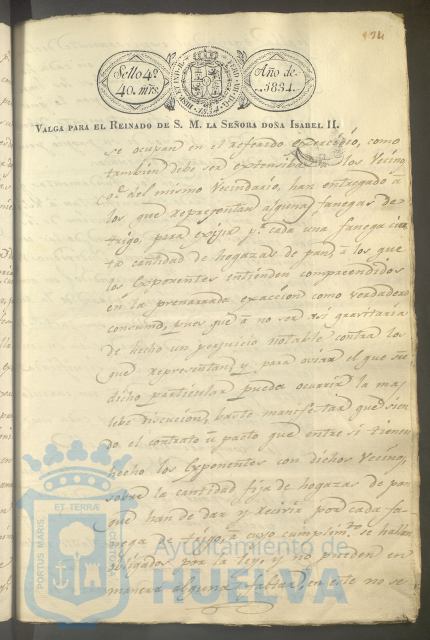 134
Sello 4º
40. mrs.
Año de
1834.
VALGA PARA EL REINADO DE S. M. LA SEÑORA DOÑA ISABEL II.
se ocupan en el referido exercicio, como
tambien debe ser extensiba los Vecinos
del mismo Vecindario, han entregado á
los que representan algunas fanegas de
trigo, para exijir pr. cada una fanega cier
ta cantidad de hogazas de pan, á los que
los Exponentes entienden comprendidos
en la prenarrada exaccion como verdadero
consumo, pues que á no ser así gravitaria
de hecho un perjuicio notable contra los
que representan, y para oviar el que su
dicho particular pueda ocurrir la mas
lebe discucion, baste manifestar que sien
do el contrato ú pacto que entre si tienen
hecho los Exponentes con dichos Vecinos,
sobre la cantidad fija de hogazas de pan
que han de dar y recivir por cada fa
nega de trigo, á cuyo cumplimto. se hallan
obligados por la ley, y no pueden en
manera alguna faltar, en este no se
PORTUS MARIS
ET TERRÆ
CUSTODIA
Ayuntamiento de
HUELVA